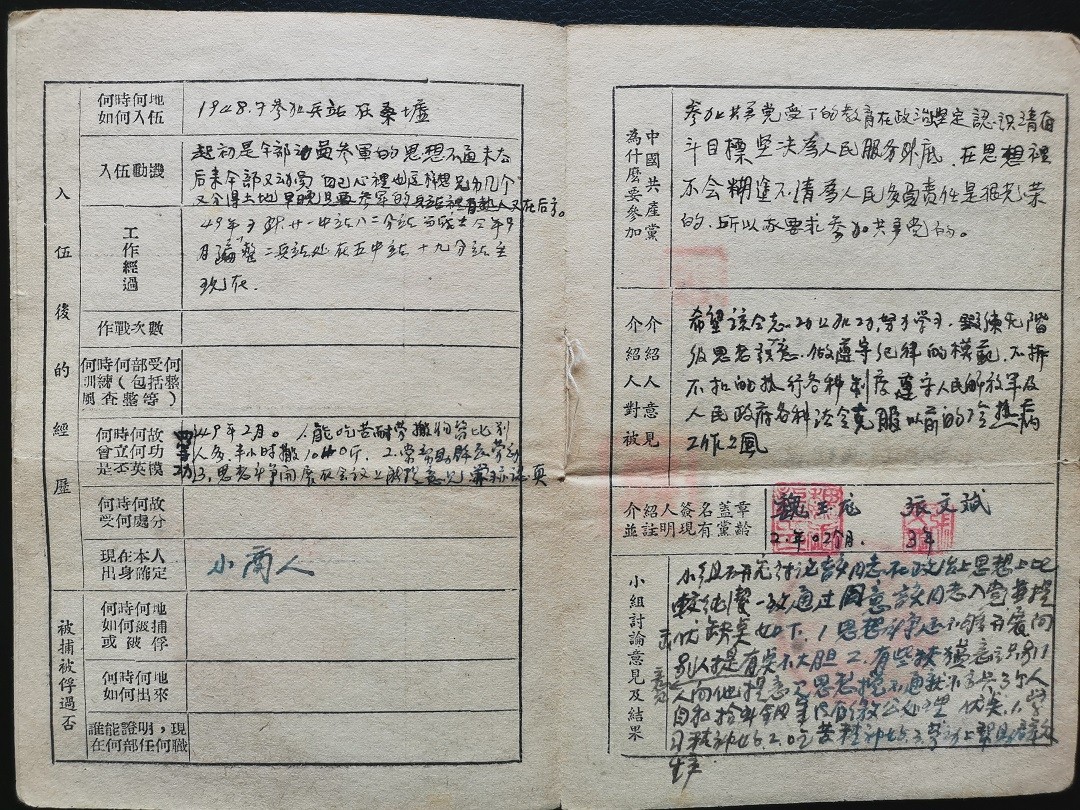 入伍後的經歷
何時何地
如何入伍
1948.7参加兵站在桑墟
入伍動機
起初是干部动員参軍的思想不通未去
后来干部又动員自己心裡也这样想兄弟几个
又分得土地早晚且要参軍的
人又在后方。
工作經過
49年
月 整二兵站处在五中站十九分站至
現在.
作戰次數
何時何部受何
訓練(包括整
風查整等)
何時何故
曾立何功
是否英模
49年2月。1.能吃苦耐劳搬的比别
人多,半小时搬 斤 2.常帮助群众劳动
3,思想斗争開展在会议上 意見
何時何故
受何處分
現在本人
出身確定
小商人
被捕被俘過否
何時何地
如何被捕
或被俘
何時何地
如何出來
誰能證明,現
在何部任何職
中國共產黨
為什麽要參加
参加共產党受了的教育在政治坚定認识清楚
斗目標坚决為人民服务到底.在思想裡
不会糊塗不清為人民多負責任是很光荣
的.所以我要求参加共產党的。
介紹人對
介紹人意見
被
希望該仝志加工加油,努力学习.鍛練无階
级思想意.做遵守纪律的模範.不折
不扣的执行各种制度遵守人民解放軍及
人民政府各种法令克服以前的冷热病
工作作風
介紹人簽名蓋章
並註明現有黨齡
魏玉龙 張文斌
2.年02个月. 3年
小組討論意見及結果
小组研究討论該同志在政治上思想上比
較纯潔一致通过同意該同志入党
优缺点如下.1思想斗争还不够开展向
别人提意見不大胆2.有些狭獈意识别
人向他提意見思想搞不通
优点.1.学
习精神好.2.吃苦精神好.3.劳动上帮助群众
生产